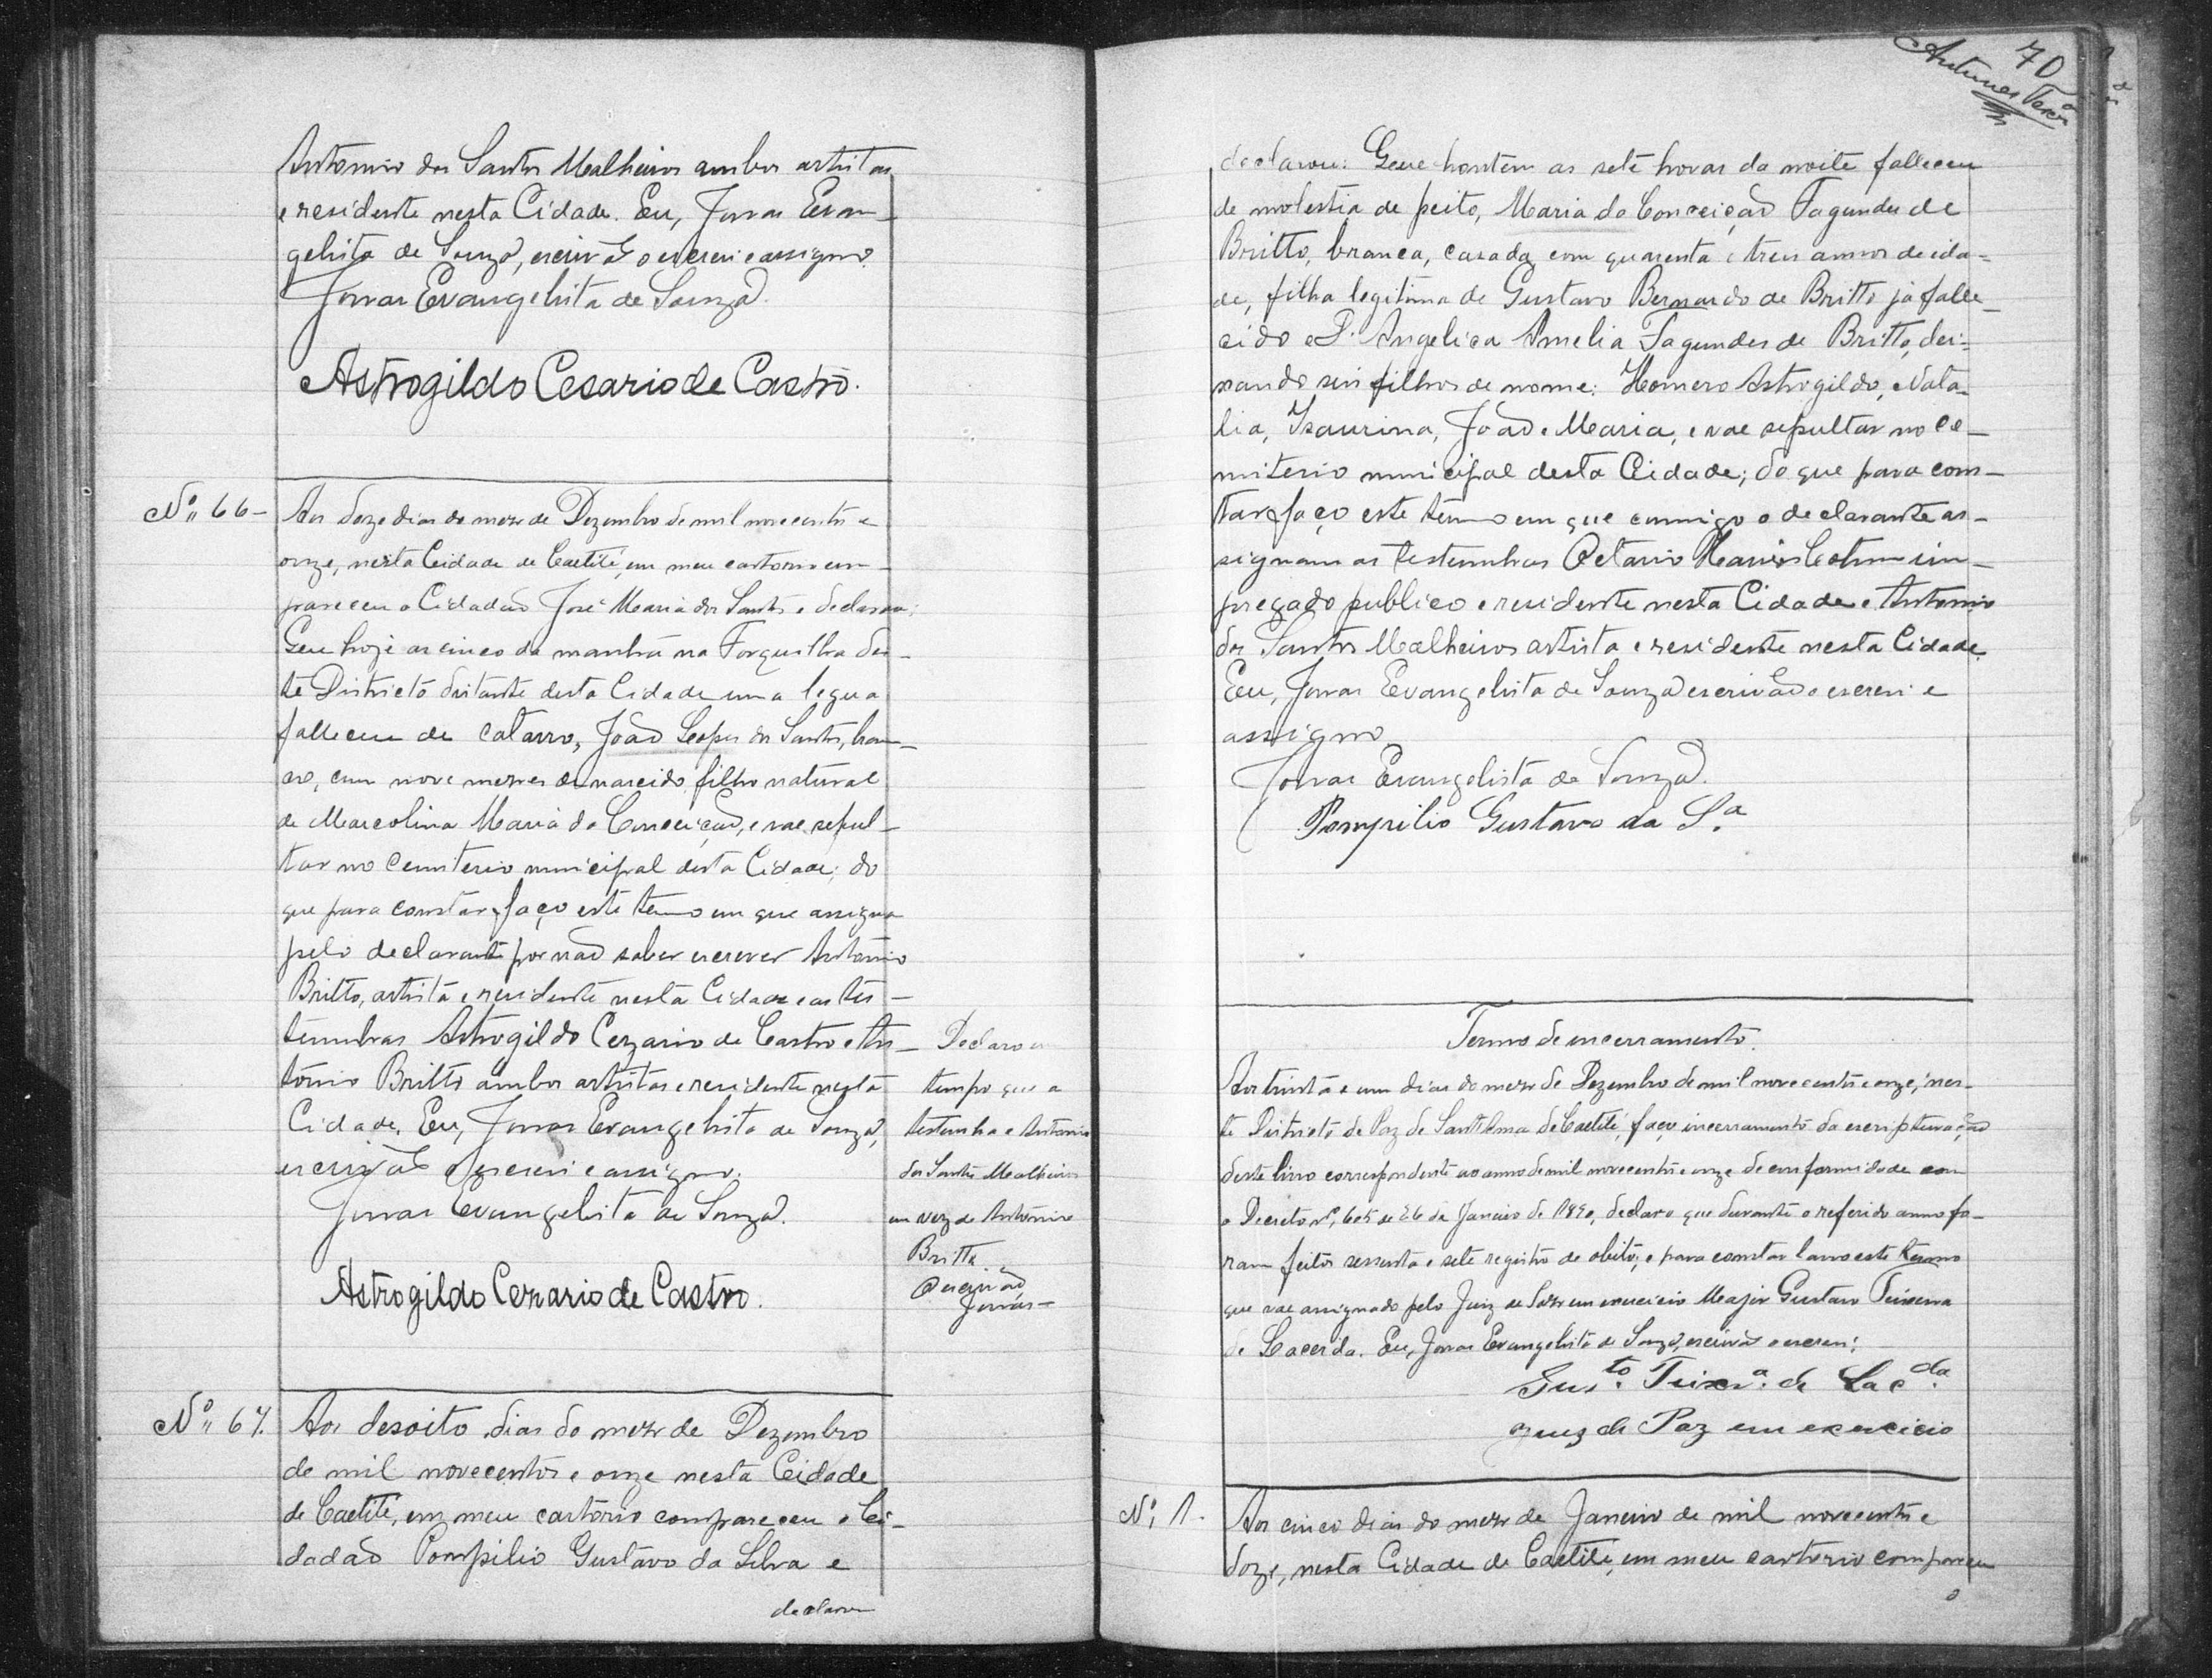 Antonio dos Santos Malheiros ambos artistas
e residente nesta Cidade. Eu, Jonas Evan-
gelista de Souza, escrivão o escrevi e assigno.
Jonas Evangelista de Souza.
Astrogildo Cesario de Castro.
Nº 66-
Aos doze dias do mez de Dezembro de mil novecentos e
onze, nesta Cidade de Caetité, em meu cartorio com-
pareceu o Cidadão José Maria dos Santos e declarou:
Que hoje as cinco da manhã na Forquilha des-
te Districto distante desta Cidade uma legua
falleceu de catarro, João Lopes dos Santos, bran-
co, com nove mezes de nascido, filho natural
de Marcolina Maria da Conceição, e vae sepul-
tar no Cemiterio municipal desta Cidade; do
que para constar faço este termo em que assigna
pelo declarante por não saber escrever Antonio
Britto, artista e residente nesta Cidade e as tes-
temunhas Astrogildo Cezario de Castro e An-
tonio Britto ambos artistas e residente nesta
Cidade. Eu, Jonas Evangelista de Souza,
escrivão o escrevi e assigno.
Jonas Evangelista de Souza.
Astrogildo Cezario de Castro.
Declaro em
tempo que a
testemunha e Antonio
dos Santos Malheiros
em vez de Antonio
Britto
O escrivão
Jonas-
Nº 67.
Aos desoito dias do mez de Dezembro
de mil novecentos e onze nesta Cidade
de Caetité, em meu cartorio compareceu o Ci-
dadão Pompilio Gustavo da Silva e
declarou
70
Antunes Teixª
declarou: Que hontem as sete horas da noite falleceu
de molestia de peito, Maria da Conceição Fagundes de
Britto, branca, casada, com quarenta e tres annos de ida-
de, filha legitima de Gustavo Bernardo de Britto já falle-
cido e D. Angelica Amelia Fagundes de Britto, dei-
xando seis filhos de nome: Homero Astrogildo, Nata-
lia, Isaurina, João e Maria, e vae sepultar no Ce-
miterio municipal desta Cidade; do que para cons-
tar faço este termo em que commigo o declarante as-
signam as testemunhas Octavio Cotrim em-
pregado publico e residente nesta Cidade e Antonio
dos Santos Malheiros artista e residente nesta Cidade.
Eu, Jonas Evangelista de Souza escrivão o escrevi e
assigno
Jonas Evangelista de Souza.
Pompilio Gustavo da Sª
Termo de encerramento.
Aos trinta e um dias do mez de Dezembro de mil novecentos e onze, nes-
te Districto de Paz de Sant'Anna de Caetité, faço incerramento da escripturação
deste livro correspondente ao anno de mil novecentos e onze de conformidade com
o Decreto nº, 605 de 26 de Janeiro de 1890, declaro que durante o referido anno fo-
ram feitos sessenta e sete registro de obito, e para constar lavro este termo
que vae assignado pelo Juiz de Paz em exercicio Major Gustavo Teixeira
de Lacerda. Eu, Jonas Evangelista de Souza, escrivão o escrevi:
Gusto. Teixrª. de Lacda.
Juiz de Paz em exercicio
Nº 1.
Aos cinco dias do mez de Janeiro de mil novecentos e
doze, nesta Cidade de Caetité, em meu cartorio compareceu
o